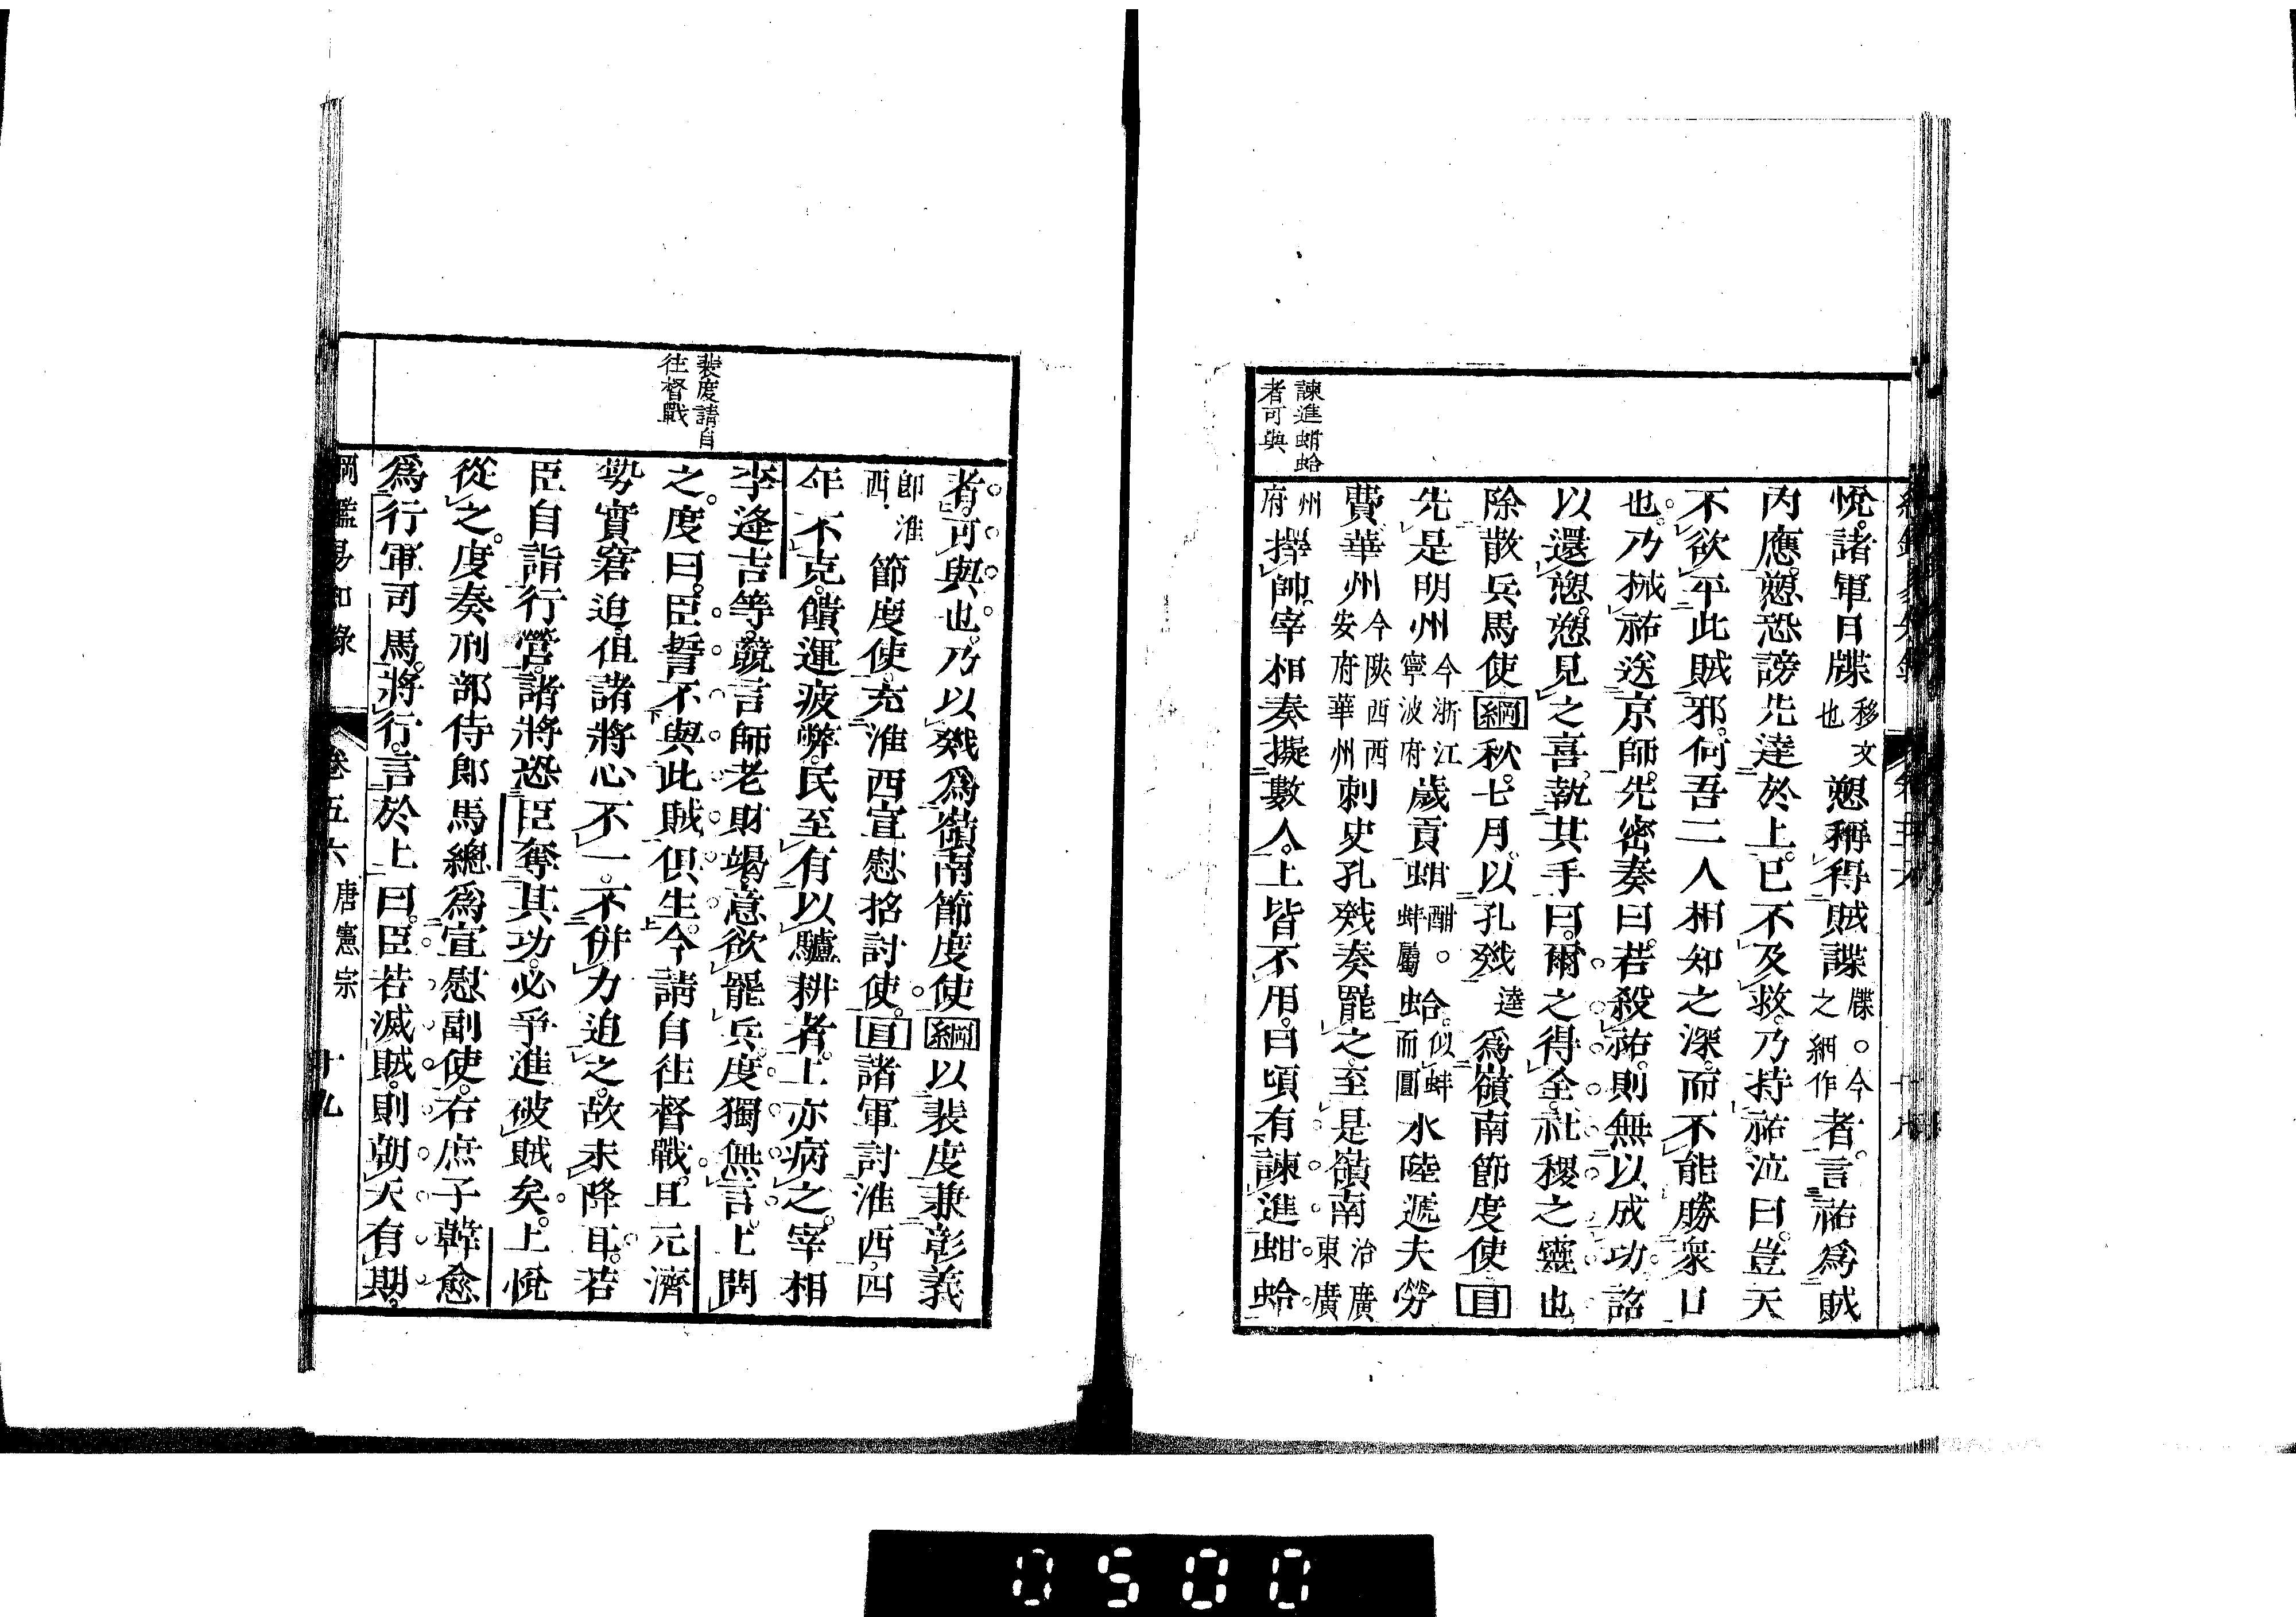 諫進蚶蛤
者可與
悅。諸軍日牒移文也愬稱得賊諜牒。今之綱作者。言祐爲賊
內應。愬恐謗先達於上。已不及救。乃持祐泣曰。豈天
不欲平此賊邪。何吾二人相知之深。而不能勝衆口
也。乃械祐送京師。先密奏曰。若殺祐。則無以成功。詔
以還愬。愬見之喜。執其手曰。爾之得全。社稷之靈也
除散兵馬使綱秋。七月。以孔戣逵爲嶺南節度使。目
先是明州今浙江寧波府歲貢蚶酣。蚌屬蛤。似蚌而圓水陸遞夫勞
費。華州今陝西西安府華州刺史孔戣奏罷之。至是嶺南治廣東廣
州府擇帥。宰相奏擬數人。上皆不用。曰頃有諫進蚶蛤
裴度請自
往督戰
者。可與也。乃以戣爲嶺南節度使。綱以裴度兼彰義
卽淮西節度使。充淮西宣慰招討使。目諸軍討淮西。四
年不克。饋運疲弊。民至有以驢耕者。上亦病之。宰相
李逢吉等。競言師老財竭。意欲罷兵。度獨無言。上問
之。度曰。臣誓不與此賊俱生。今請自往督戰。且元濟
勢實窘迫。但諸將心不一。不併力迫之。故未降耳。若
臣自詣行營。諸將恐臣奪其功。必爭進破賊矣。上悅
從之。度奏刑部侍郎馬總爲宣慰副使。右庶子韓愈
爲行軍司馬。將行。言於上曰。臣若滅賊。則朝天有期。
綱鑑易知錄 卷五六 唐憲宗 十九
0500